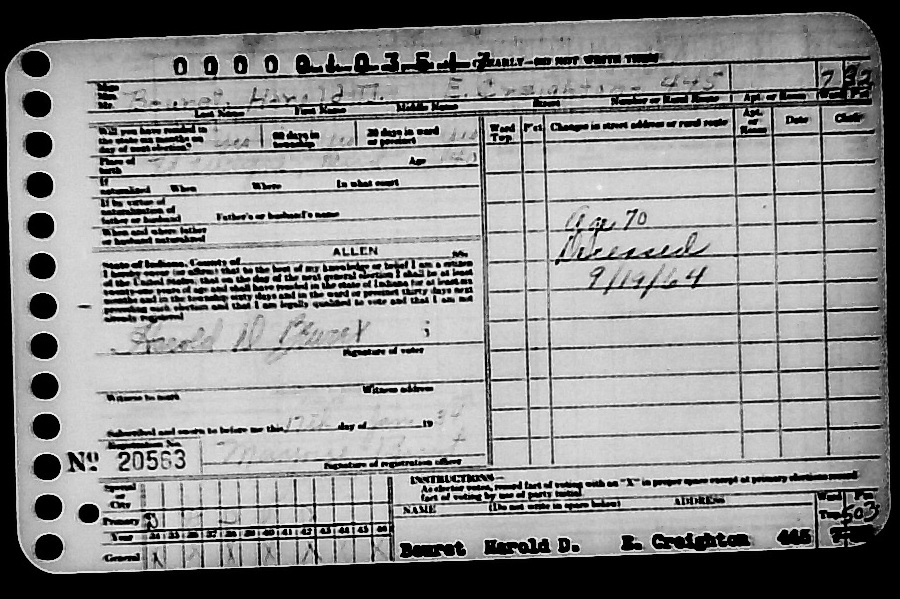 0 0 0 0 0 1 0 3 5 1 7 CLEARLY—DO NOT WRITE THERE
Beuret, Harold D. E. Creighton 445 7 32
Last Name First Name Middle Name Street Number or Rural Route Apt. or Room
Will you have resided in the state six months on day of next election? yes 60 days in township yes 30 days in ward or precinct yes
Place of birth Age 40
If naturalized When Where In what court
If by virtue of naturalization of father or husband Father's or husband's name
When and where father or husband naturalized
Ward Twp. P'ct. Changes in street address or rural route Apt. or Room Date Clerk
Age 70
Deceased
9/19/64
State of Indiana, County of ALLEN SS:
I hereby swear (or affirm) that to the best of my knowledge or belief I am a citizen
of the United States, that on the day of the next general election I shall be at least
twenty-one years of age and shall have resided in the state of Indiana for at least six
months and in the township sixty days and in the ward or precinct thirty days next
preceding such election and that I am legally qualified to vote and that I am not
already registered
Harold D Beuret
Signature of voter
Witness to mark Witness address
Subscribed and sworn to before me this 17th day of Jan 19 34
Registration No.
Nº 20563
Signature of registration officer
INSTRUCTIONS—
As elector votes, record fact of voting with an "X" in proper space except at primary elections record
fact of voting by use of party initial.
NAME (Do not write in space below) ADDRESS Ward Twp. P'ct.
Special or City
Primary D
Year 34 35 36 37 38 39 40 41 42 43 44 45 46
General X X X X X X X
503
Beuret Harold D. E. Creighton 445